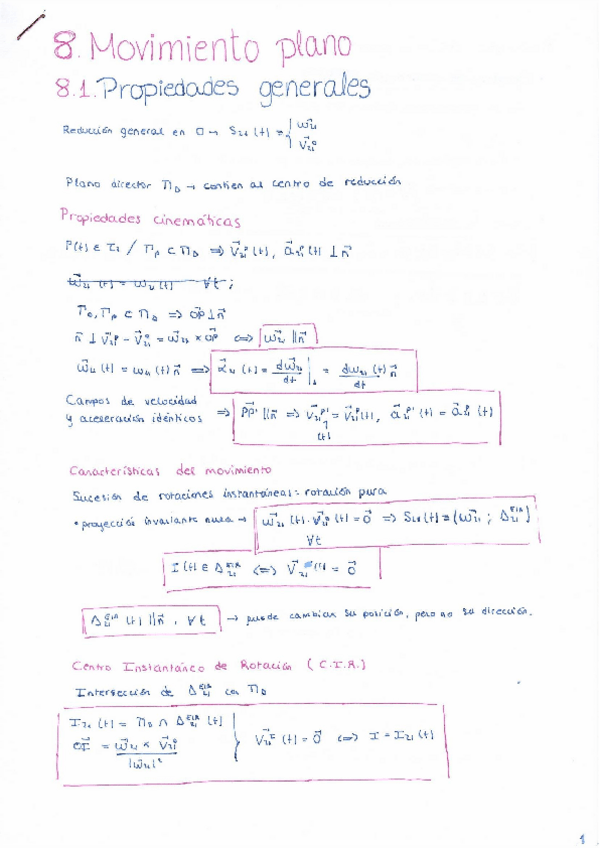 8. Movimiento plano
8.1. Propiedades generales
Reducción general en O → S₂₁(t) = { ω⃗₂₁
V⃗₂₁ᴼ
Plano director Π_D → contien al centro de reducción
Propiedades cinemáticas
P(t) ∈ τ₂ / Π_P ⊂ Π_D ⇒ V⃗₂₁ᴾ(t), a⃗₂₁ᴾ(t) ⊥ n⃗
ω⃗₂₁(t) = ω₂₁(t) ∀t ;
Π_O, Π_P ⊂ Π_D ⇒ OP⃗ ⊥ n⃗
n⃗ ⊥ V⃗₂₁ᴾ - V⃗₂₁ᴼ = ω⃗₂₁ × OP⃗ ⇔ ω⃗₂₁ ∥ n⃗
ω⃗₂₁(t) = ω₂₁(t) n⃗ ⇒ α⃗₂₁(t) = dω⃗₂₁/dt |₁ = dω₂₁(t)/dt n⃗
Campos de velocidad
y aceleración idénticos ⇒ PP'⃗ ∥ n⃗ ⇒ V⃗₂₁ᴾ'(t) = V⃗₂₁ᴾ(t), a⃗₂₁ᴾ'(t) = a⃗₂₁ᴾ(t)
Características del movimiento
Sucesión de rotaciones instantáneas: rotación pura
• proyección invariante nula → ω⃗₂₁(t) · V⃗₂₁ᴾ(t) = 0⃗ ⇒ S₂₁(t) = (ω⃗₂₁ ; Δ₂₁ᴱᴵᴿ)
∀t
I(t) ∈ Δ₂₁ᴱᴵᴿ ⇔ V⃗₂₁ᴵ(t) = 0⃗
Δ₂₁ᴱᴵᴿ(t) ∥ n⃗, ∀t → puede cambiar su posición, pero no su dirección.
Centro Instantáneo de Rotación (C.I.R.)
Intersección de Δ₂₁ᴱᴵᴿ con Π_D
I₂₁(t) = Π_D ∩ Δ₂₁ᴱᴵᴿ(t)
OI⃗ = ω⃗₂₁ × V⃗₂₁ᴼ / |ω⃗₂₁|² } V⃗₂₁ᴵ(t) = 0⃗ ⇔ I = I₂₁(t)
1